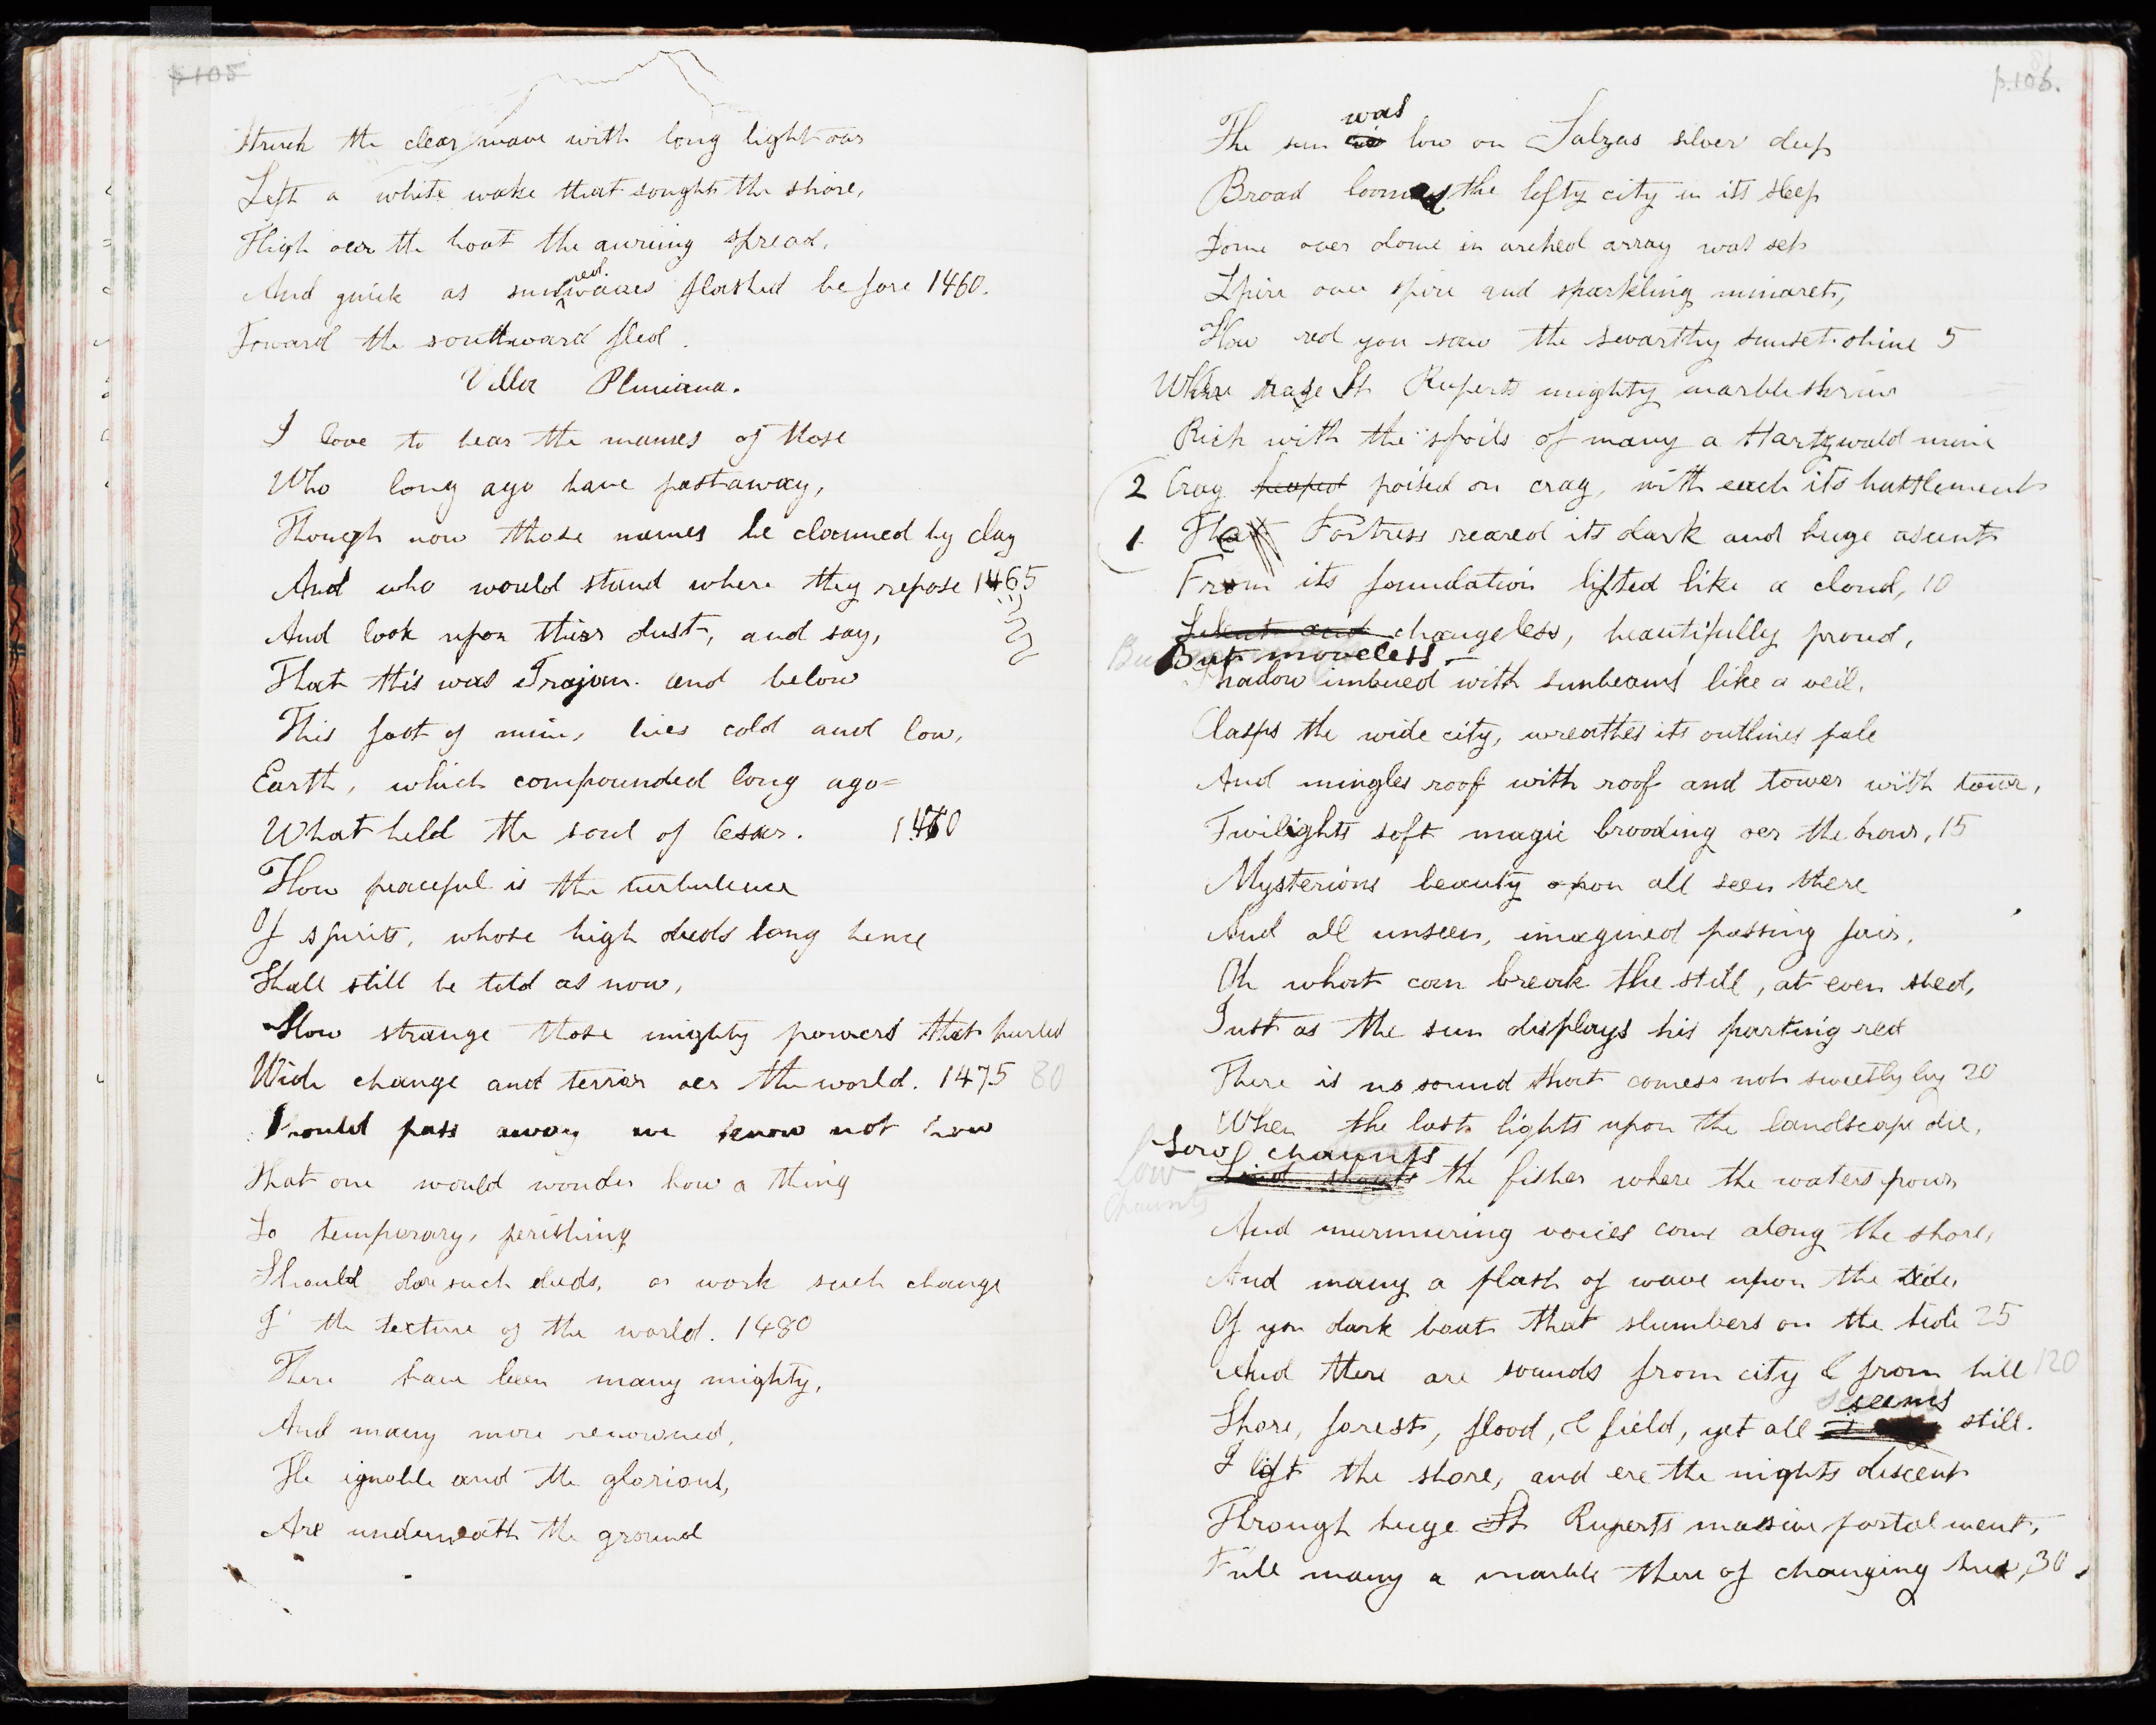 p 105
Struck the clear wave with long light oar
Left a white wake that sought the shore,
High oer the boat the auning spread,
And quick as sun red waves flashed before 1460.
Toward the southward fled.
Villa Pliniana.
I love to hear the names of those
Who long ago have past away,
Though now those names be claimed by clay
And who would stand where they repose 1465
And look upon their dust, and say,
That this was Trajan. and below
This foot of mine, lies cold and low,
Earth, which compounded long ago=
What held the soul of Cesar. 1470
How peaceful is the turbulence
Of spirits, whose high deeds long hence
Shall still be told as now,
How strange those mighty powers that hurled
Wide change and terror oer the world. 1475 80
Should pass away we know not how
That one would wonder how a thing
So temporary, perishing
Should do such deeds, or work such change
I' the texture of the world. 1480
There have been many mighty,
And many more renowned,
The ignoble and the glorious,
Are underneath the ground
p. 106.
was
The sun is low on Salzas silver deep
Broad looms the lofty city in its sleep
Dome over dome in arched array was set
Spire over spire and sparkling minaret,
How red you saw the swarthy sunset shine 5
Where St Ruperts mighty marble shrine
Rich with the spoils of many a Hartzwald mine
2 Crag heaped poised on crag, with each its battlement
1 That Fortress reared its dark and huge ascent
From its foundation lifted like a cloud, 10
Silent and changeless, beautifully proud,
But moveless
Shadow imbued with sunbeams like a veil,
Clasps the wide city, wreathes its outlines pale
And mingles roof with roof and tower with tower,
Twilights soft magic brooding oer the hour, 15
Mysterious beauty upon all seen there
And all unseen, imagined passing fair,
Oh what can break the still, at even shed,
Just as the sun displays his parting red
There is no sound that comes not sweetly by 20
When the last lights upon the landscape die,
Low chaunts
Low chaunts
Loud shouts the fisher where the waters pour
And murmuring voices come along the shore,
And many a plash of wave upon the side,
Of yon dark boat that slumbers on the tide 25
And there are sounds from city & from hill 120
seems
Shore, forest, flood, & field, yet all still.
I left the shore, and ere the nights descent
Through huge St Ruperts massive portal went,
Full many a marble there of changing hue, 30